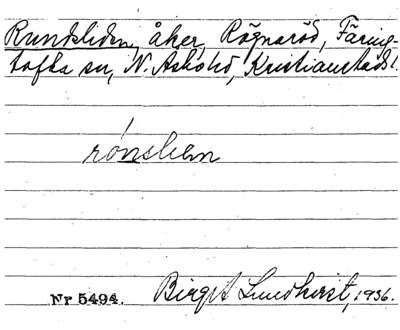 Rundsliden, åker, Rögnaröd, Färing-
tofta sn, N. Åsbo hd, Kristianstads l.
rónslien
Nr 5494. Birgit Lundkvist, 1936.